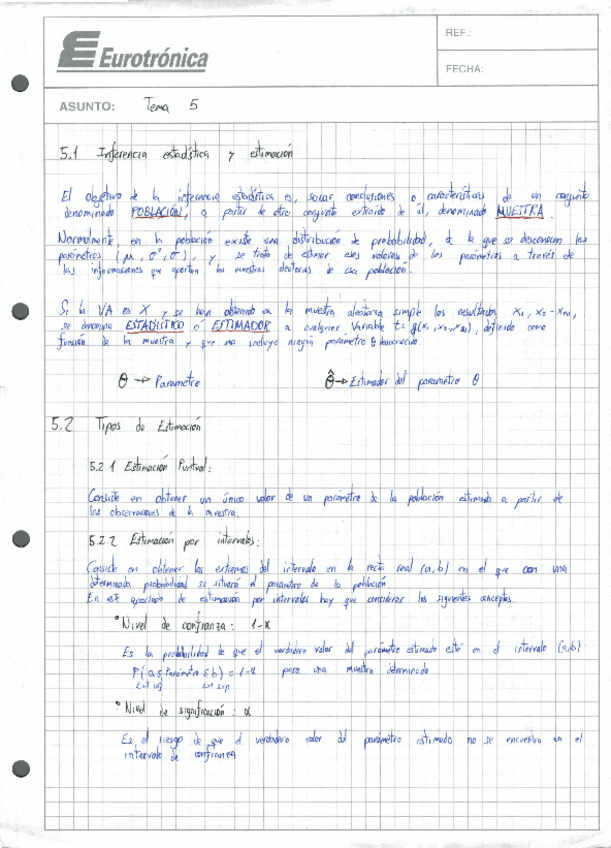 Eurotrónica
REF.:
FECHA:
ASUNTO: Tema 5
5.1 Inferencia estadística y estimación
El objetivo de la inferencia estadística es, sacar conclusiones o características de un conjunto
denominado POBLACIÓN, a partir de otro conjunto extraído de él, denominado MUESTRA.
Normalmente, en la población existe una distribución de probabilidad, de la que se desconocen los
parámetros (μ, σ², σ), y se trata de estimar esos valores de los parámetros a través de
las informaciones que aportan las muestras aleatorias de esa población.
Si la VA es X y se han obtenido en la muestra aleatoria simple los resultados x₁, x₂ - xₙ,
se denomina ESTADÍSTICO ó ESTIMADOR a cualquier variable t = g(x₁, x₂, xₙ), definido como
función de la muestra y que no incluye ningún parámetro θ desconocido.
θ → Parámetro
θ̂ → Estimador del parámetro θ
5.2 Tipos de Estimación
5.2.1 Estimación Puntual:
Consiste en obtener un único valor de un parámetro de la población estimada a partir de
las observaciones de la muestra.
5.2.2 Estimación por intervalos:
Consiste en obtener los extremos del intervalo en la recta real (a,b) en el que con una
determinada probabilidad se situará el parámetro de la población
En este apartado de estimación por intervalos hay que considerar los siguientes conceptos.
* Nivel de confianza: 1-α
Es la probabilidad de que el verdadero valor del parámetro estimado esté en el intervalo (a,b)
P(a ≤ parámetro ≤ b) = 1-α para una muestra determinada
* Nivel de significación: α
Es el riesgo de que el verdadero valor del parámetro estimado no se encuentra en el
intervalo de confianza